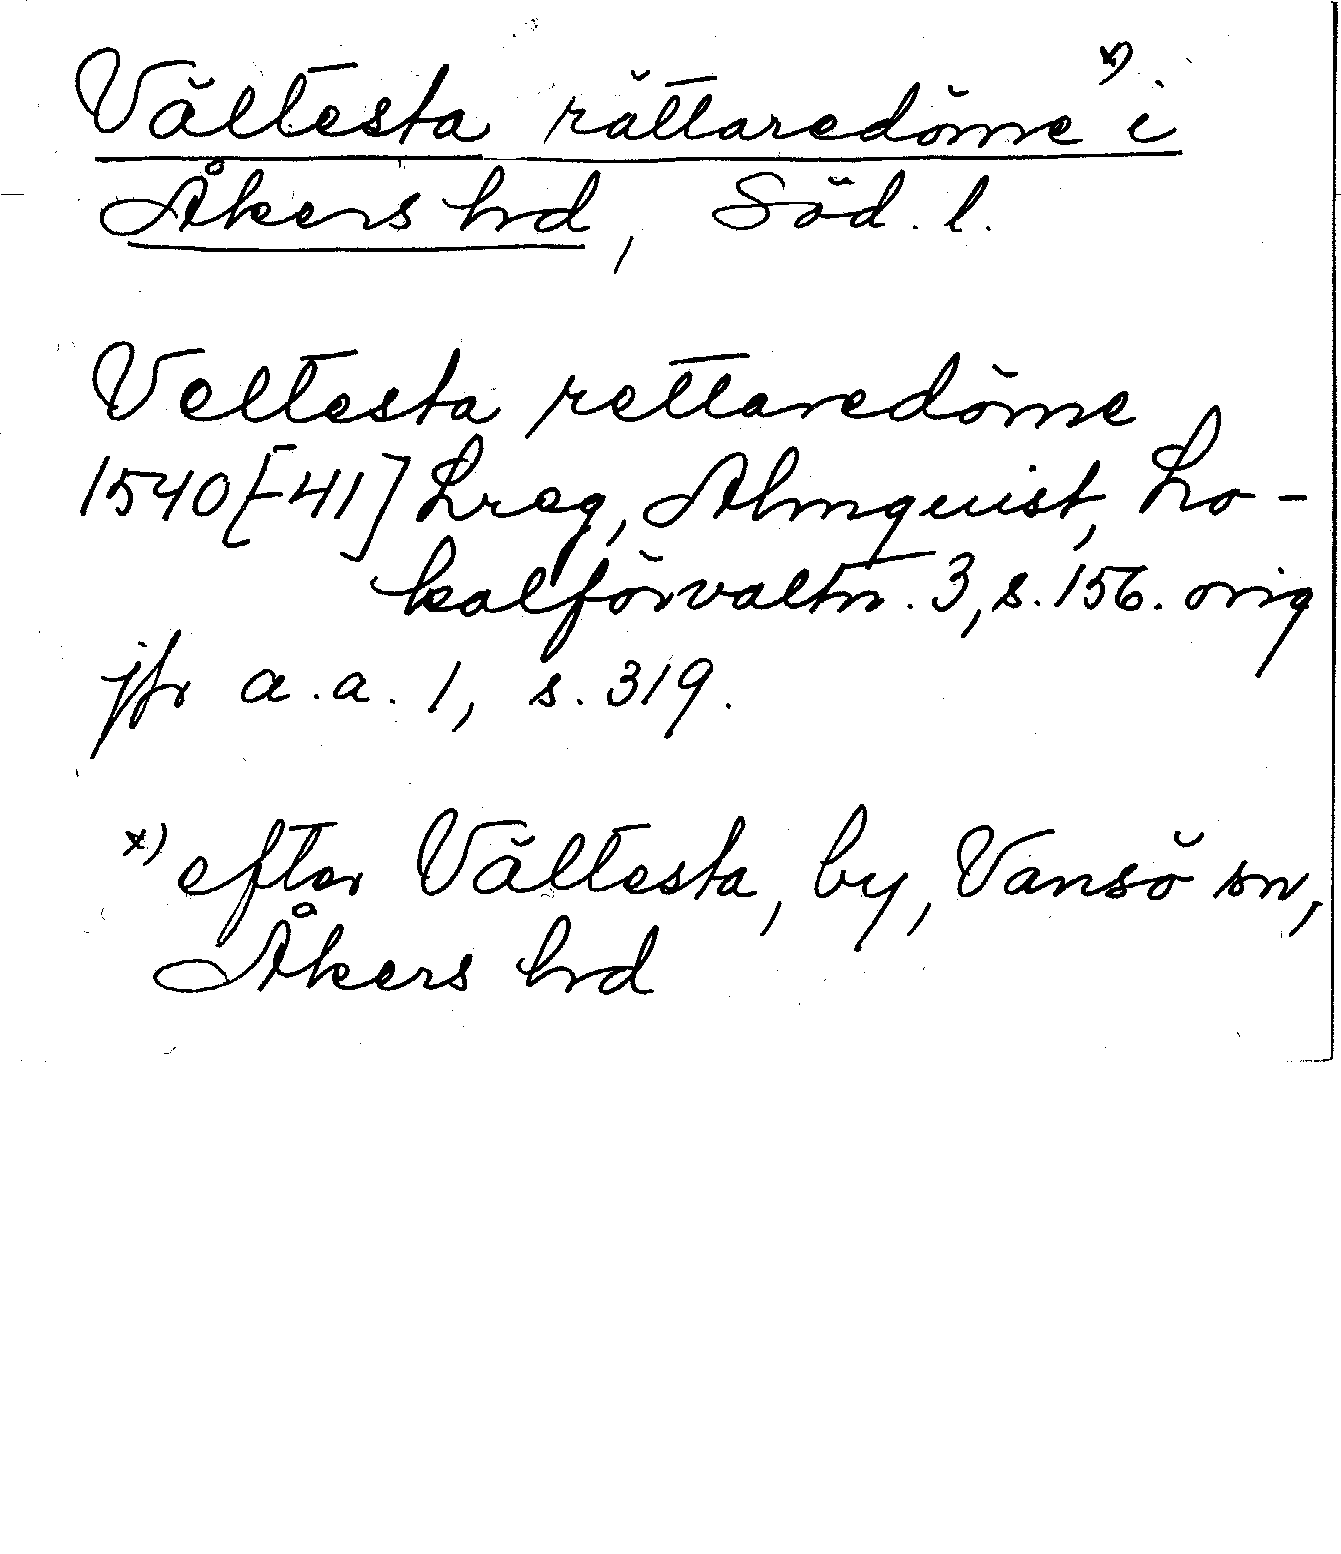 Vältesta rättaredöme x) i
Åkers hrd, Söd. l.
Veltesta rettaredöme
1540[-41] Lreg, Almquist, Lo-
kalförvaltn. 3, s. 156. orig
jfr a.a. 1, s. 319.
x) efter Vältesta, by, Vansö sn,
Åkers hrd